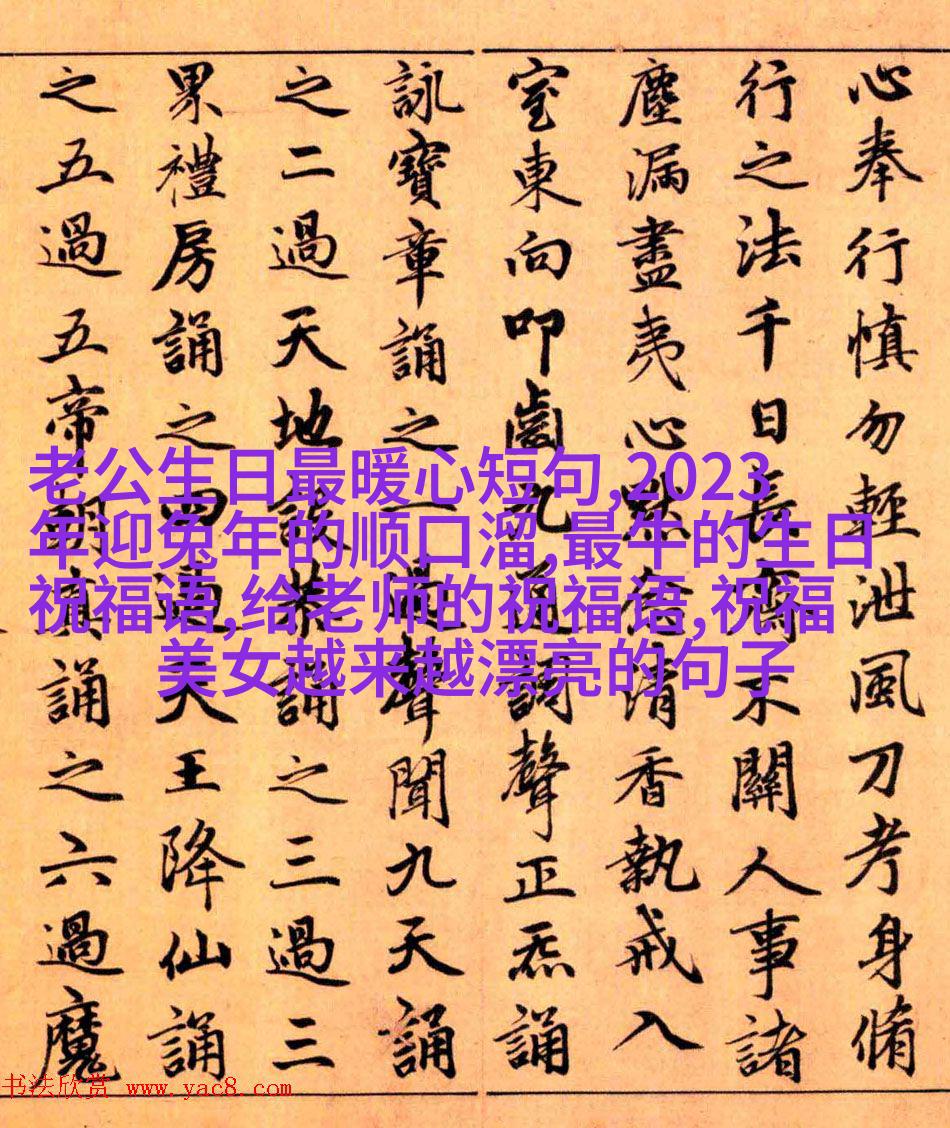 心奉行慎勿輕泄風刀考身脩
行之法千日長齋不關人事諸
塵漏盡夷心默念清香執戒入
室東向叩齒九通調聲正炁誦
詠寶章誦之一過聲聞九天誦
之二過天地設恭誦之三過三
累禮房誦之四過天王降仙誦
之五過五帝朝真誦之六過魔
老公生日最暖心短句,2023
年迎兔年的顺口溜,最牛的生日
祝福语,给老师的祝福语,祝福
美女越来越漂亮的句子
书法欣赏 www.yac8.com